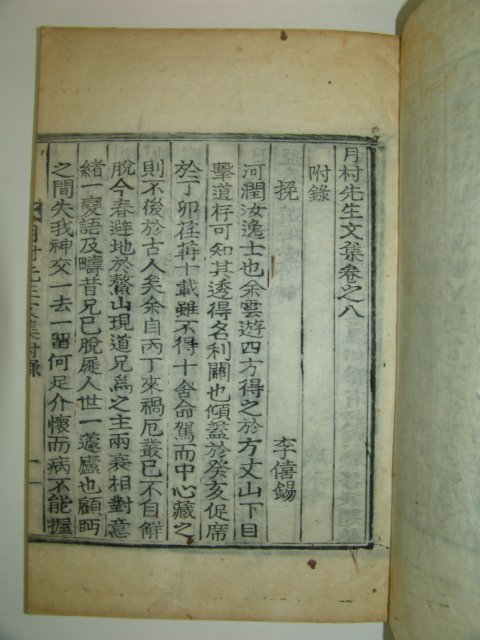 月村先生文集卷之八
附錄
挽 李僖錫
河潤汝逸士也余雲遊四方得之於方丈山下目
擊道存可知其透得名利關也傾蓋於癸亥促席
於丁卯荏苒十載雖不得十舍命駕而中心藏之
則不後於古人矣余自丙丁來禍厄叢已不自解
脫今春避地於鰲山現道兄為之主兩衰相對意
緒一變語及疇昔兄已脫屣人世一蘧廬也顧眄
之間失我神交一去一留何足介懷而病不能握
月村先生文集附錄 一